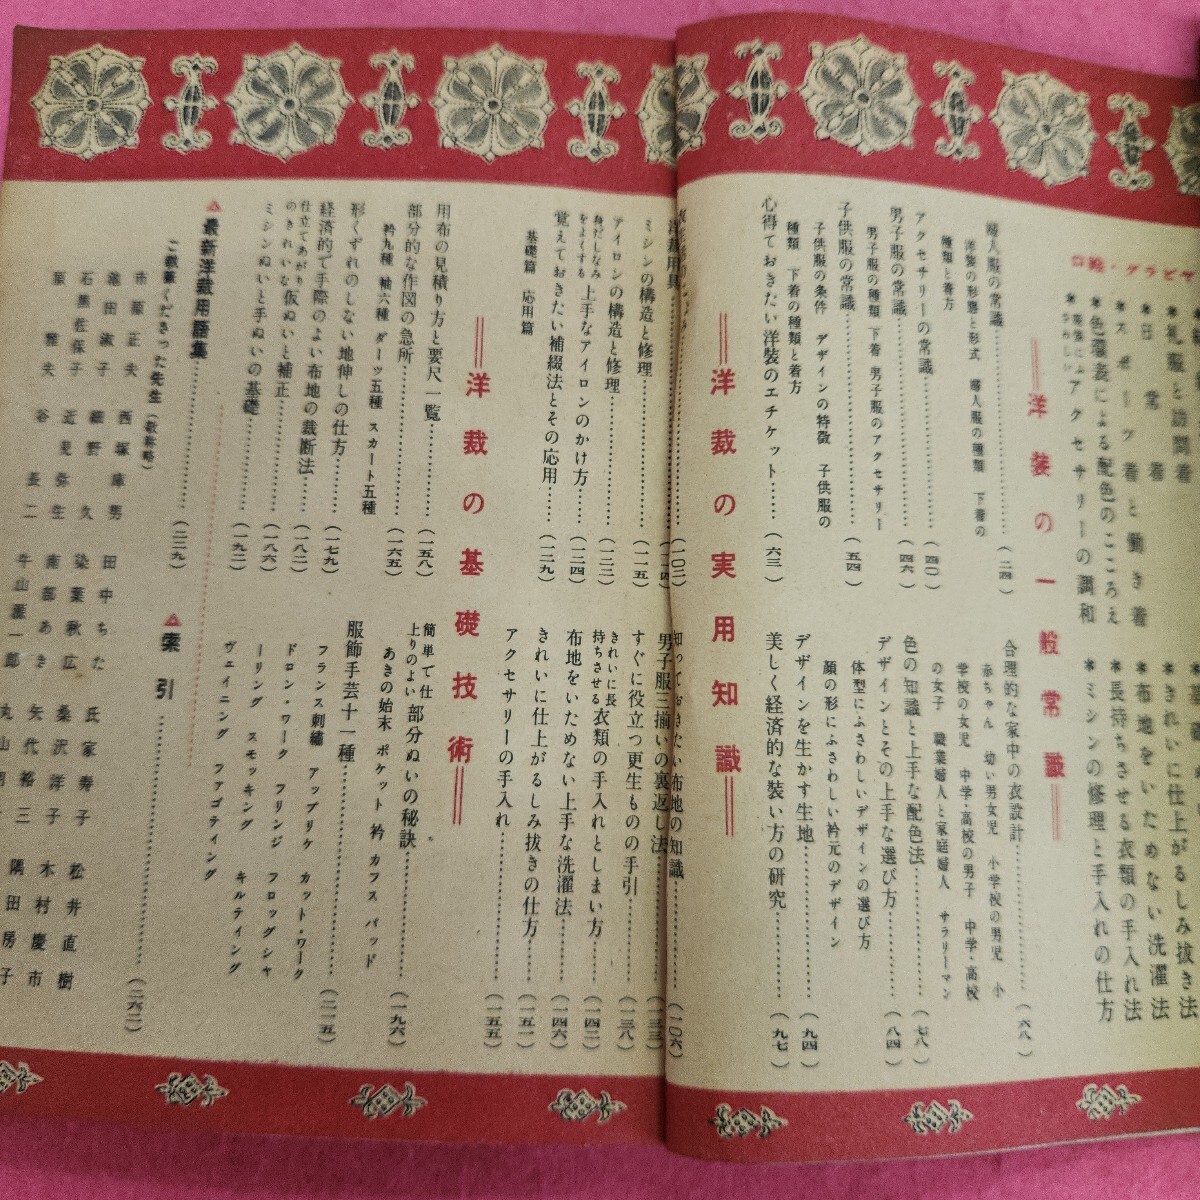 ＊礼服と訪問着
＊スポーツ着と働き着
＊日常着
＊色彩表による配色のこころえ
＊服装にふさわしいアクセサリーの調和
＊きれいに仕上がるしみ抜き法
＊布地をいためない洗濯法
＊長持ちさせる衣類の手入れ法
＊ミシンの修理と手入れの仕方
洋装の一般常識
婦人服の常識……(二四)
洋装の形態と形式　婦人服の種類　下着の
種類と着方
アクセサリーの常識……(四〇)
男子服の常識……(四六)
男子服の種類　下着　男子服のアクセサリー
子供服の常識……(五四)
子供服の条件　デザインの特徴　子供服の
種類　下着の種類と着方
心得ておきたい洋装のエチケット……(六三)
合理的な家中の衣設計……(六八)
赤ちゃん　幼い男女児　小学校の男児　小
学校の女児　中学・高校の男子　中学・高校
の女子　職業婦人と家庭婦人　サラリーマン
色の知識と上手な配色法……(七八)
デザインとその上手な選び方……(八四)
体型にふさわしいデザインの選び方
顔の形にふさわしい衿元のデザイン
デザインを生かす生地……(九四)
美しく経済的な装い方の研究……(九七)
洋裁の実用知識
洋裁用具……
ミシンの構造と修理……(一一五)
アイロンの構造と修理……(一二三)
身だしなみをよくする上手なアイロンのかけ方……(一二四)
覚えておきたい補綴法とその応用……(一二九)
基礎篇　応用篇
知っておきたい布地の知識……(一〇六)
男子服三揃いの裏返し法……(一三三)
すぐに役立つ更生ものの手引……(一三八)
きれいに長持ちさせる衣類の手入れとしまい方……(一四二)
布地をいためない上手な洗濯法……(一四六)
きれいに仕上がるしみ抜きの仕方……(一五一)
アクセサリーの手入れ……(一五五)
洋裁の基礎技術
用布の見積り方と要尺一覧……(一五八)
部分的な作図の急所……(一六五)
衿九種　袖六種　ダーツ五種　スカート五種
形くずれのしない地伸しの仕方……(一七九)
経済的で手際のよい布地の裁断法……(一八二)
仕立てあがりのきれいな仮ぬいと補正……(一八六)
ミシンぬいと手ぬいの基礎……(一九二)
簡単で仕上りのよい部分ぬいの秘訣……(一九六)
あきの始末　ポケット　衿　カフス　パッド
服飾手芸十一種……(二一五)
フランス刺繡　アップリケ　カット・ワーク
ドロン・ワーク　フリンジ　フロッグシャ
ーリング　スモッキング　キルティング
ヴェイニング　ファゴティング
最新洋裁用語集……(二二九)
索引……(二六二)
ご執筆くださった先生(敬称略)
市原正夫　西塚庫男　田中ちた　氏家寿子　松井直樹
池田淑子　細野久　染葉秋広　桑沢洋子　木村慶市
石黒佐保子　近見弥生　南部あき　矢代裕三　隅田房子
原雅夫　谷長二　牛山源一郎